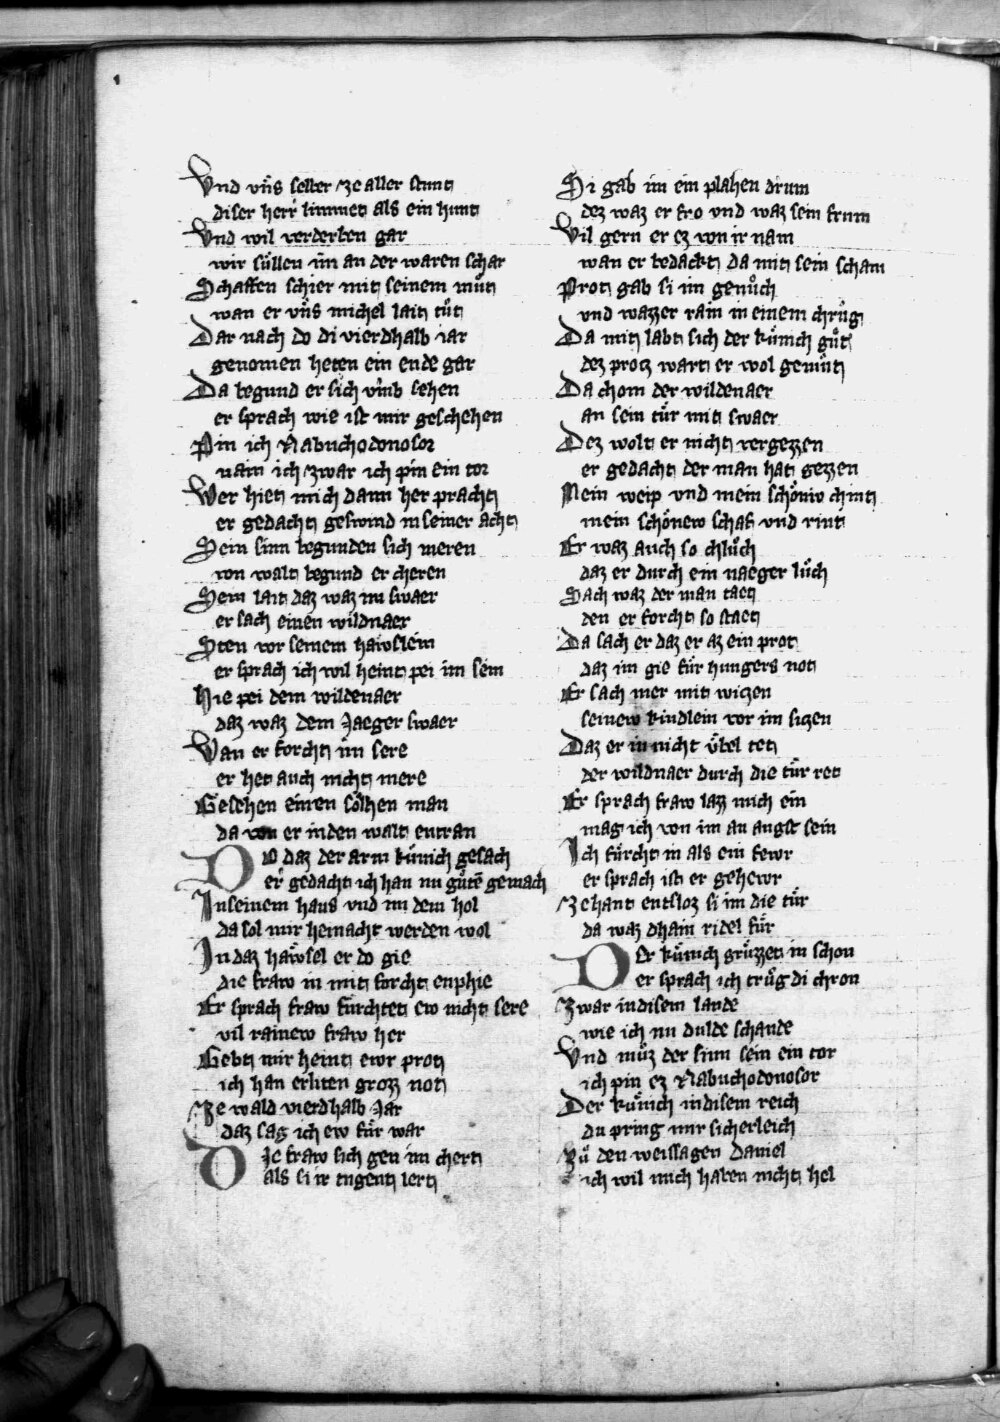 Vnd vns selber ze aller stunt
diser herr limmet als ein hunt
Vnd wil verderben gar
wir süllen im an der waren schar
Schaffen schier mit seinem můt
wan er vns michel lait tůt
Dar nach do di vierdhalb iar
genomen heten ein ende gar
Da begund er sich vmb sehen
er sprach wie ist mir geschehen
Pin ich Nabuchodonosor
nain ich zwar ich pin ein tor
Wer hiet mich dann her pracht
er gedacht geswind in seiner acht
Sein sinn begunden sich meren
von walt begund er cheren
Sein lait daz waz im swaer
er sach einen wildnaer
Sten vor seinem häwslein
er sprach ich wil heint pei im sein
Hie pei dem wildenaer
daz waz dem Jaeger swaer
Wan er forcht im sere
er het auch nicht mere
Gesehen einen sölhen man
da von er in den walt entran
DO daz der arm künich gesach
er gedacht ich han nu gůtē gemach
In seinem haus vnd in dem hol
da sol mir heinacht werden wol
In daz häwsel er do gie
die fraw in mit forcht enphie
Er sprach fraw fürchtet ew nicht sere
vil rainew fraw her
Gebt mir heint ewr prot
ich han erliten grozz not
Ze wald vierdhalb Jar
daz sag ich ew für war
DIe fraw sich gen im chert
als si ir tugent lert
Si gab im ein plahen drum
dez waz er fro vnd waz sein frum
Vil gern er ez von ir nam
wan er bedackt da mit sein scham
Prot gab si im genůch
vnd wazzer rain in einem chrůg
Da mit labt sich der künich gůt
dez protz wart er wol gemůt
Da chom der wildenaer
an sein tür mit swaer
Dez wolt er nicht vergezzen
er gedacht der man hat gezzen
Mein weip vnd mein schöniw chint
mein schönew schaf vnd rint
Er waz auch so chlůch
daz er durch ein naeger lůch
Sach waz der man taet
den er forcht so staet
Da sach er daz er az ein prot
daz im gie für hungers not
Er sach mer mit witzen
seinew kindlein vor im sitzen
Daz er in nicht übel tet
der wildnaer durch die tür ret
Er sprach fraw lazz mich ein
mag ich von im an angst sein
Ich fürcht in als ein fewr
er sprach ist er gehewr
Zehant entsloz si im die tür
da waz dhain ridel für
DEr künich grüzzet in schon
er sprach ich trůg di chron
Zwar in disem lande
wie ich nu dulde schande
Vnd můz der sinn sein ein tor
ich pin ez Nabuchodonosor
Der künich in disem reich
du pring mir sicherleich
Zů den weissagen Daniel
ich wil mich haben nicht hel